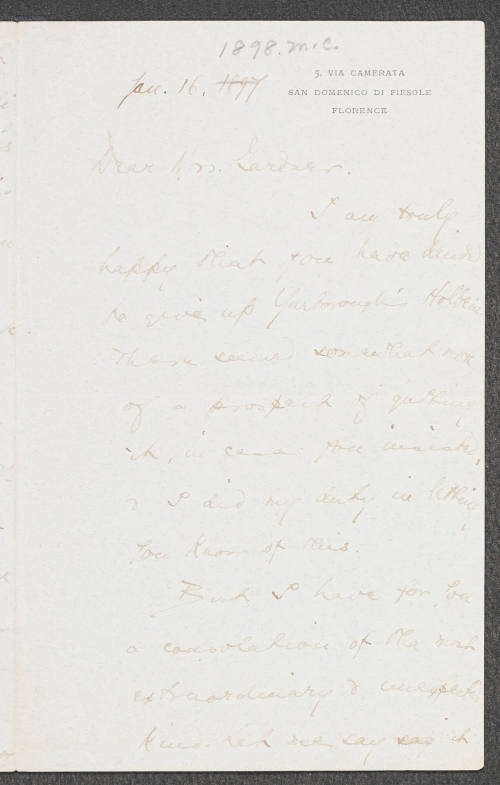 1898. m.c.
5, VIA CAMERATA
SAN DOMENICO DI FIESOLE
FLORENCE
Jan. 16. 1897
Dear Mrs. Gardner.
I am truly
happy that you have decided
to give up Yarborough's Holbein
There seemed somewhat more
of a prospect of getting
it, in case you insisted,
& I did my duty in letting
you know of this.
But I have for you
a consolation of the most
extraordinary & unexpected
kind. Let me say it